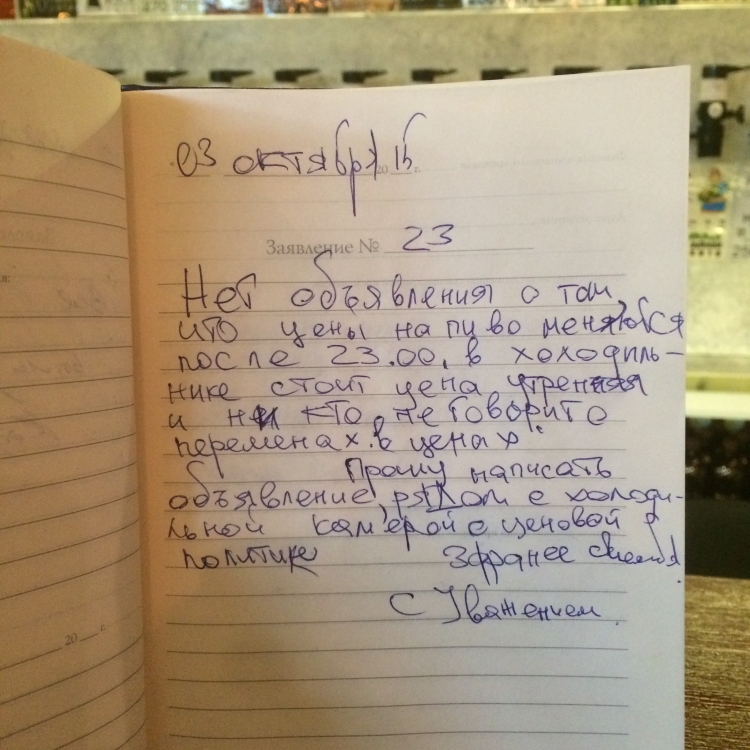 03 октября 20 16 г.
Заявление № 23
Нет объявления о том,
что цены на пиво меняются
после 23.00, в холодиль-
нике стоит цена утренняя
и ни кто не говорит о
переменах в ценах.
Прошу написать
объявление, рядом с холоди-
льной камерой о ценовой
политике Заранее
С Уважением.
20 г.